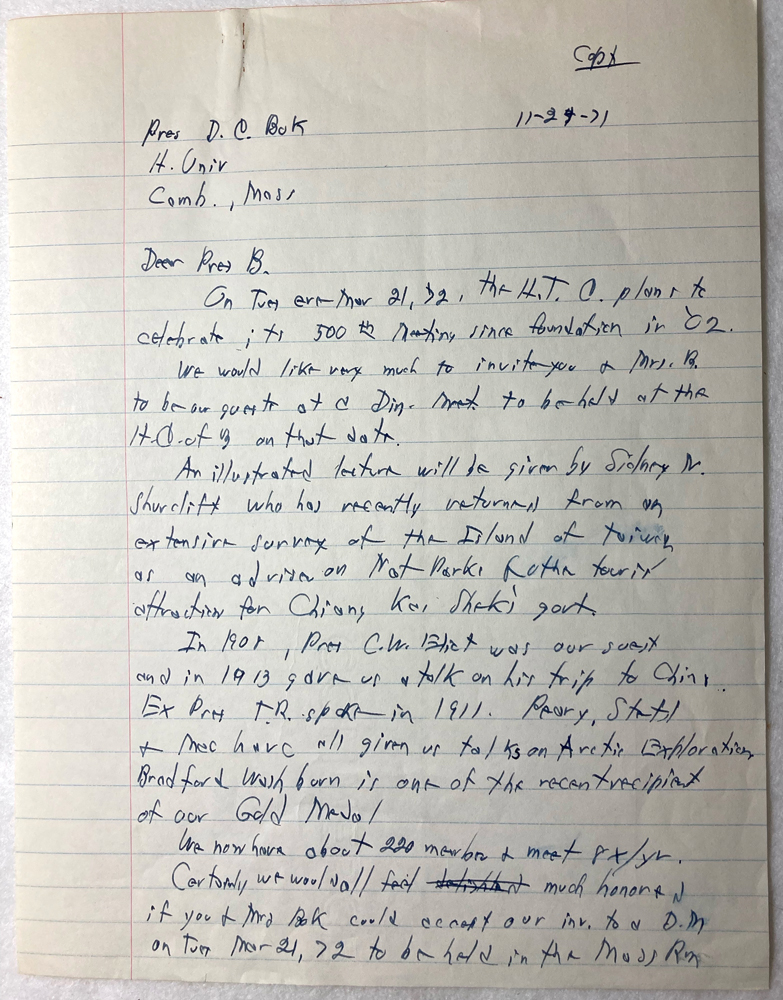 Copy
11-24-71
Pres D. C. Bok
H. Univ
Camb., Mass
Dear Pres B.
On Tues eve Mar 21, 72, the H.T. C. plans to
celebrate its 500 th Meeting since foundation in 02.
We would like very much to invite you & Mrs. B.
to be our guests at a Din. Meet to be held at the
H.C. of B on that date.
An illustrated lecture will be given by Sidney N.
Shurcliff who has recently returned from an
extensive survey of the Island of Taiwan
as an advisor on Nat Parks & othe tourist
attraction for Chiang Kai Shek's govt.
In 1908, Pres C.W. Eliot was our guest
and in 1913 gave us a talk on his trip to China.
Ex Pres T.R. spoke in 1911. Peary, Stef
& Mac have all given us talks on Arctic Exploration
Bradford Washburn is one of the recent recipient
of our Gold Medal
We now have about 220 membrs & meet 8x/yr.
Certainly we would all feel much honored
if you & Mrs Bok could accept our inv. to a D.M
on Tues Mar 21, 72 to be held in the Mass Rm